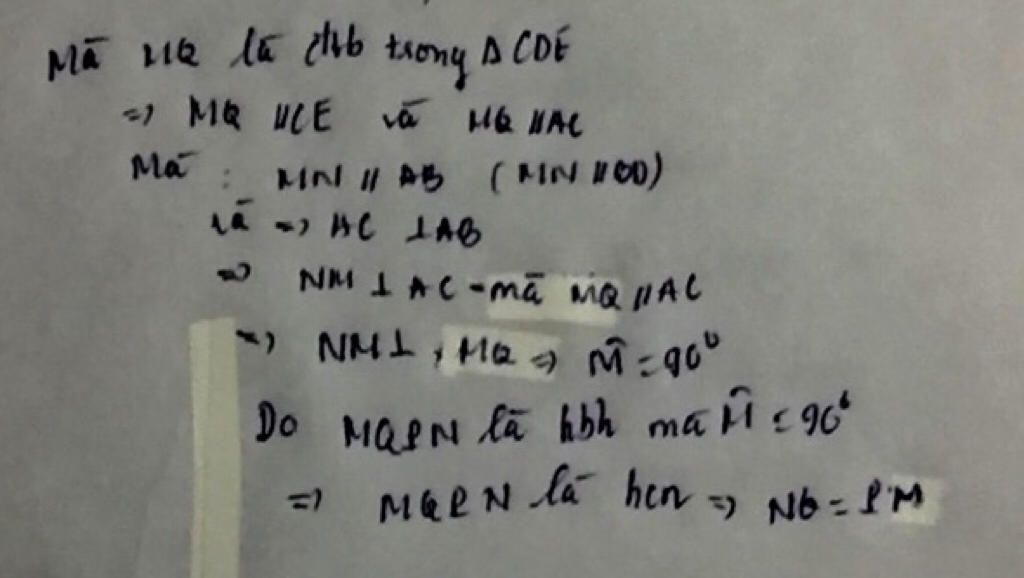 Mà MQ là đtb trong ΔCDE
=> MQ // CE và MQ // AC
Mà : MN // AB ( MN // CD)
và => AC ⊥ AB
=> NM ⊥ AC - mà MQ // AC
=> NM ⊥ , MQ => M̂ = 90⁰
Do MQPN là hbh mà M̂ = 90⁰
=> MQPN là hcn => NQ = PM